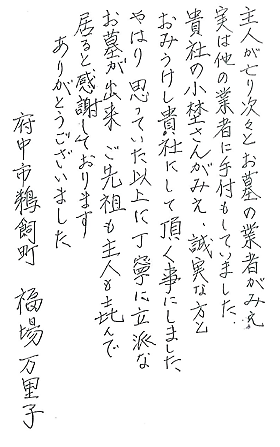 主人が亡り次々とお墓の業者がみえ
実は他の業者に手付もしていました。
貴社の小埜さんがみえ、誠実な方と
おみうけし貴社にして頂く事にしました、
やはり思っていた以上に丁寧に立派な
お墓が出来ご先祖も主人も㐂んで
居ると感謝しております
ありがとうございました
府中市鵜飼町 福場万里子